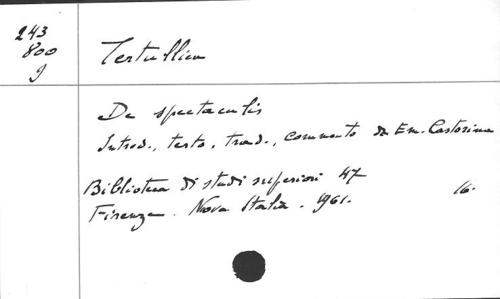 243
800
J
Tertullien
De spectaculis
Introd., testo, trad., commento di Em. Castorina
Biblioteca di studi superiori 47
Firenze. Nova Italia. 1961.
16.